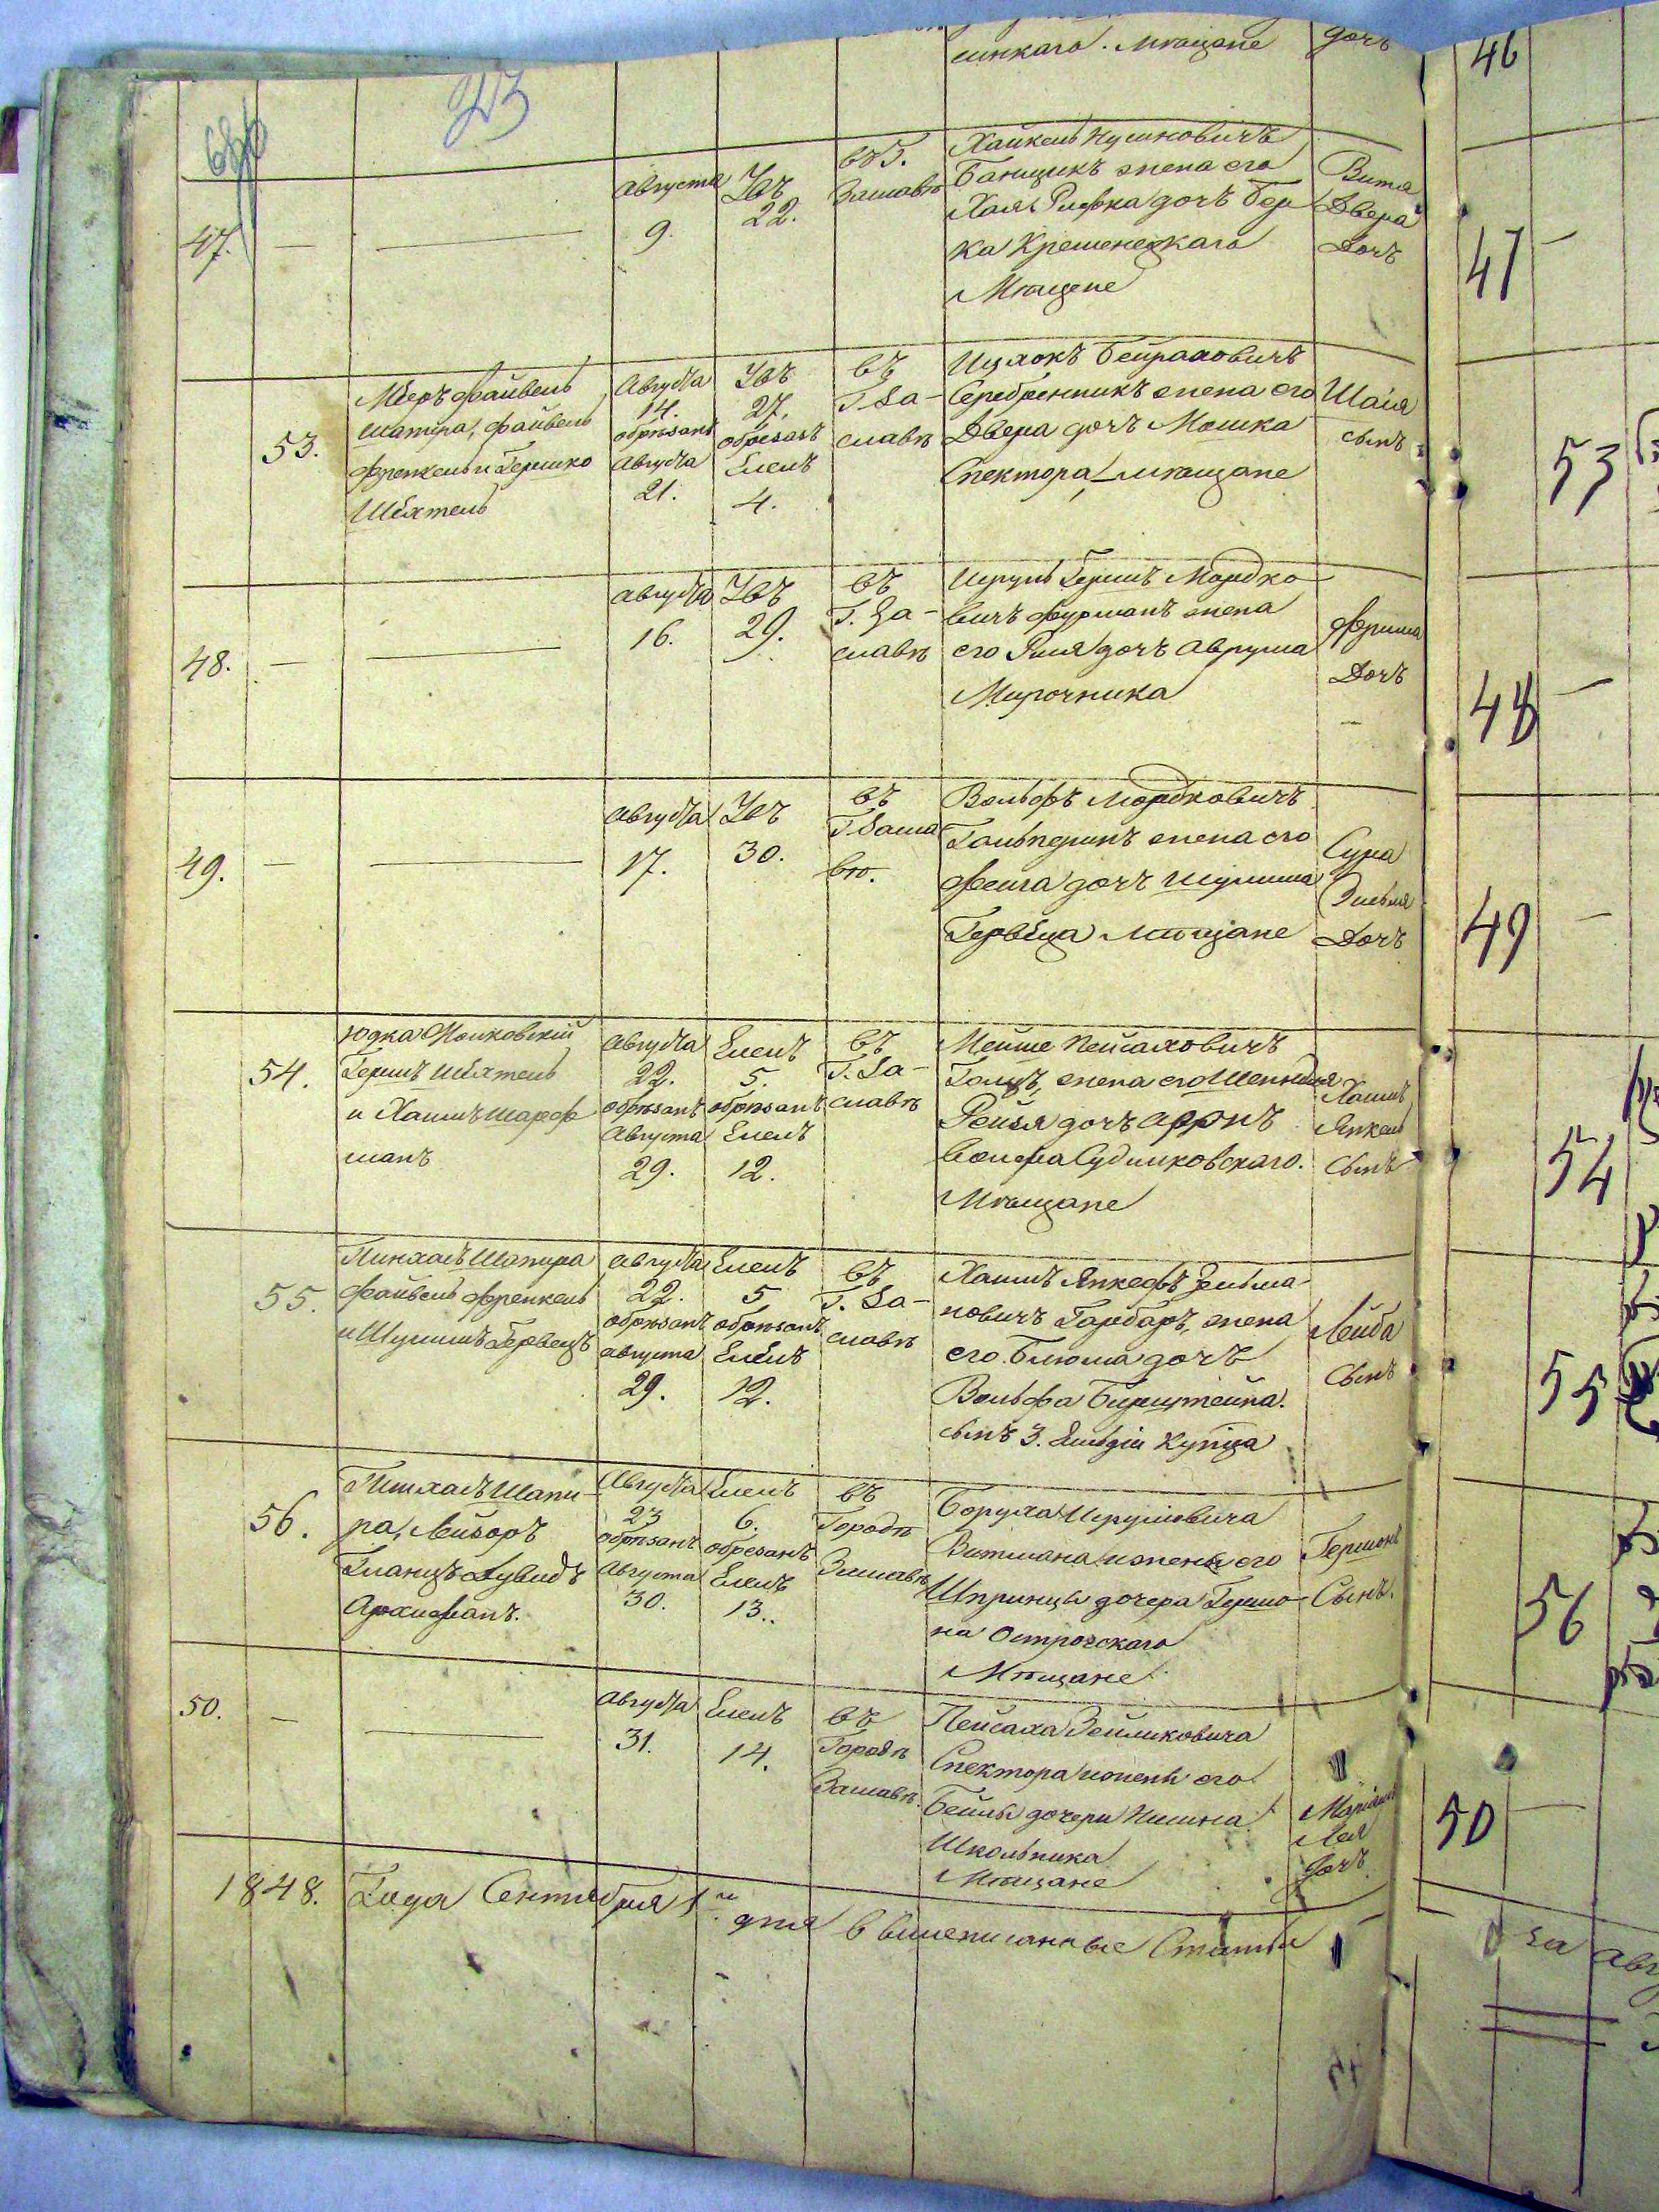 шнкаго. Мѣщане дочь
23
47. — —
Августа 9.
Увъ 22.
въ Г. Заславѣ
Хайкель Нусиновичъ
Банщикъ жена его
Хая Рифка дочъ Бер
ка Кременецкаго
Мѣщане
Вита
Двера
Дочъ
53.
Мееръ Файвель
Шапира, Файвель
Френкель и Гершко
Шехтель
Августа
14.
обрѣзанъ
Августа
21.
Увъ
27.
обрезанъ
Елелъ
4.
въ
Г. За-
славѣ
Ицхокъ Бейраховичъ
Серебренникъ жена его
Двера дочъ Мошка
Спектора, мѣщане
Шаія
сынъ
48. — —
Августа
16.
Увъ
29.
въ
Г. За-
славѣ
Шулъ Гершъ Мордко
вичъ Фурманъ жена
его дочъ Аврума
Мирочника
Фрима
Дочъ
—
49. — —
Августа
17.
Увъ
30.
въ
Г. Засла
вѣ.
Вольфъ Мордковичъ
Гальперинъ жена его
Фейга дочъ Шулима
Гервеца Мѣщане
Сура
Дочъ
54.
Юдка
Гершъ Шехтель
и Хаимъ Шарф
манъ
Августа
22.
обрѣзанъ
Августа
29.
Елелъ
5.
обрѣзанъ
Елелъ
12.
въ
Г. За-
славѣ
Мейше Пейсаховичъ
Гольцъ, жена его
Рейзя дочъ Аронъ
Вольфа Судилковскаго.
Мѣщане
Хаимъ
Янкель
Сынъ
55.
Пинхасъ Шапира
Файвель Френкель
и Шулимъ Гервецъ
Августа
22.
обрѣзанъ
Августа
29.
Елелъ
5
обрѣзанъ
Елелъ
12.
въ
Г. За-
славѣ
Хаимъ Янкефъ Зельма
новичъ Гарбаръ, жена
его Блюма дочъ
Вольфа Бернштейна.
сынъ 3. Гильдіи Купца
Лейба
Сынъ
56.
Пинхасъ Шапи
ра, Лейзоръ
Гланцъ Дувидъ
Августа
23
обрѣзанъ
Августа
30.
Елелъ
6.
обрезанъ
Елелъ
13.
въ
Городѣ
Заславѣ
Боруха Шулимовича
Витмана и жены его
Шпринцы дочера Гершо-
на Острожскаго
Мѣщане
Гершонъ
Сынъ.
50. — —
Августа
31.
Елелъ
14.
въ
Городѣ
Заславѣ.
Пейсаха Зейликовича
Спектора и жены его
Бейлы дочери Нисина
Школьника
Мѣщане
Маріамъ
Лея
Дочъ
1848. Года Сентября 1го дня вышеписанные Статьи
46
47 —
53
48 —
49 —
54
55
56
50 —
за авг